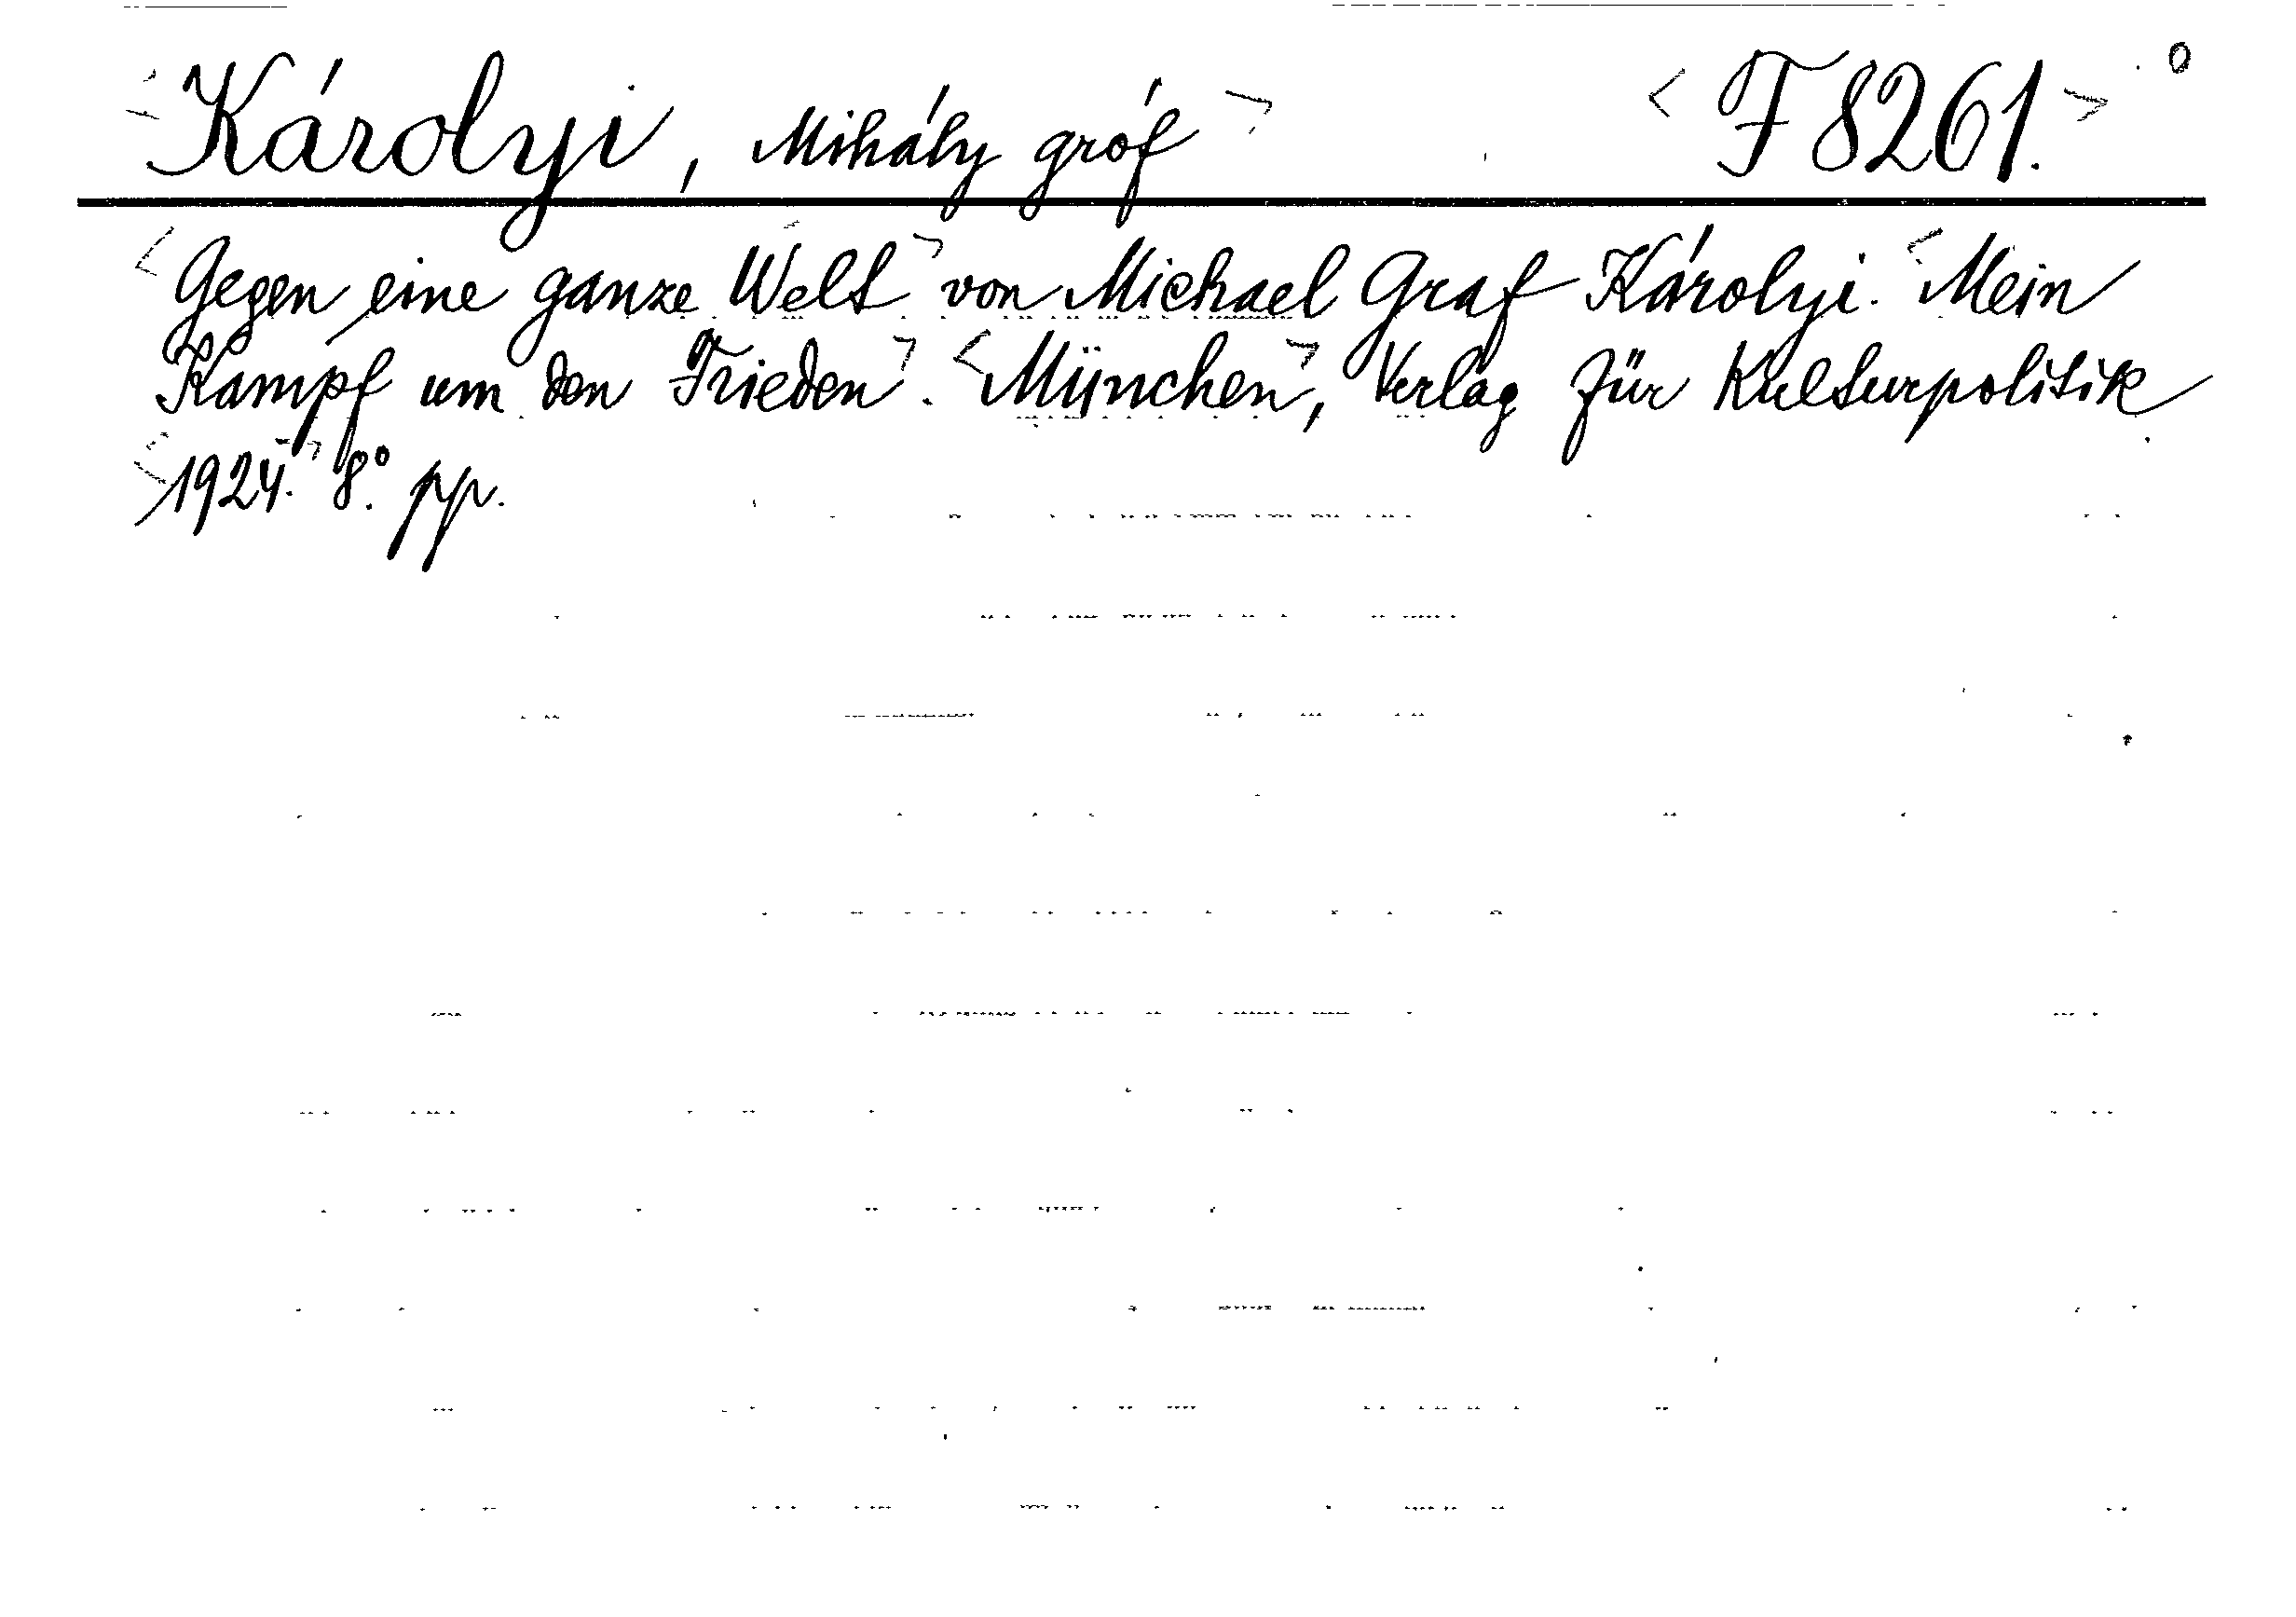 <Károlyi, Mihály gróf> <F 8261.> o
<Gegen eine ganze Welt> von Michael Graf Károlyi. <Mein
Kampf um den Frieden>. <München>, Verlag für Kulturpolitik.
<1924.> 8.° pp.